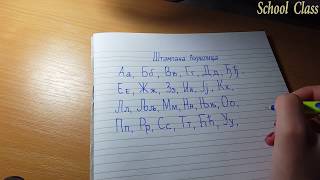 School Class
Штампана ћирилица
Аа, Бб, Вв, Гг, Дд, Ђђ,
Ее, Жж, Зз, Ии, Јј, Кк,
Лл, Љљ, Мм, Нн, Њњ, Оо,
Пп, Рр, Сс, Тт, Ћћ, Уу,